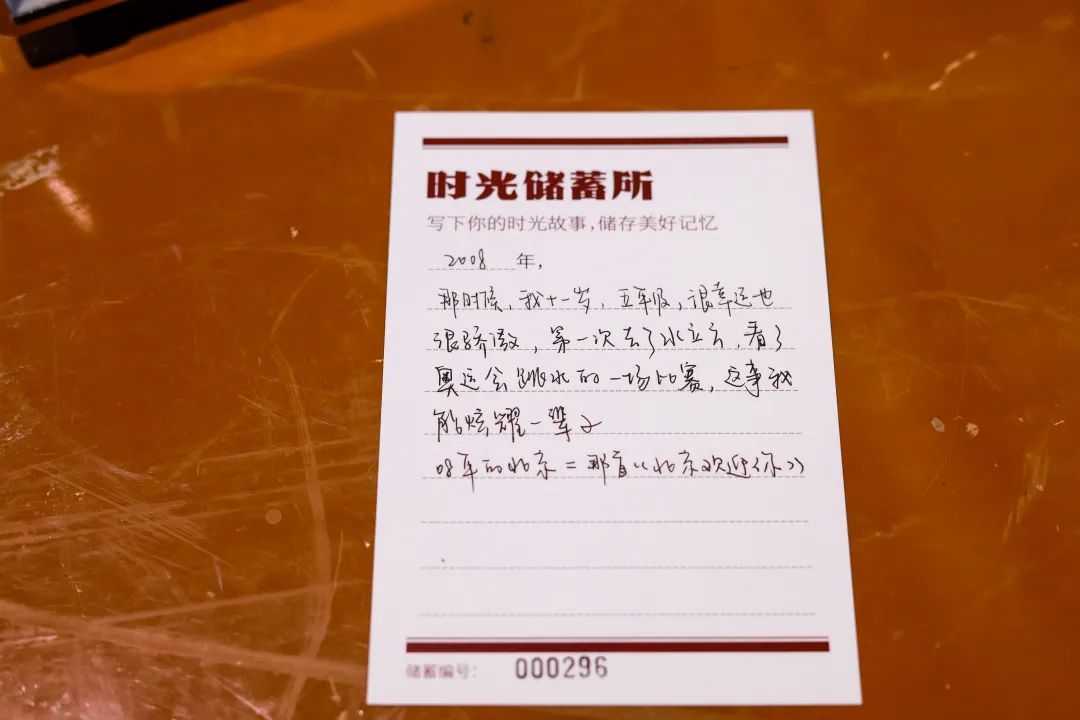 时光储蓄所
写下你的时光故事,储存美好记忆
2008 年,
那时候,我十一岁,五年级,很幸运也
很骄傲,第一次去了水立方,看了
奥运会跳水的一场比赛,这事我
能炫耀一辈子
08年的北京=那首《北京欢迎你》
储蓄编号: 000296